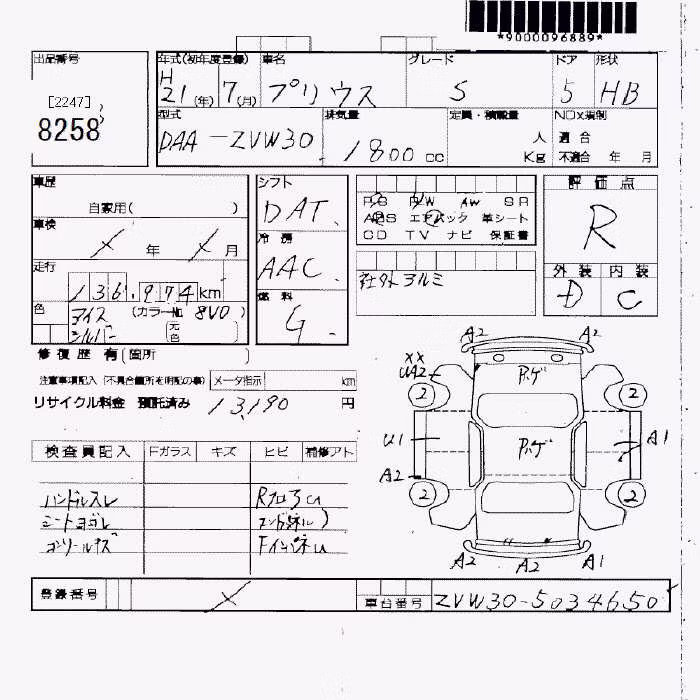 *9000096889*
出品番号 年式(初年度登録) 車名 グレード ドア 形状
[2247]
8258
H21(年) 7(月) プリウス S 5 HB
型式 排気量 定員・積載量 NOx規制
DAA-ZVW30 1800cc 人 Kg 適合 不適合 年 月
車歴 シフト 評価点
自家用( ) DAT R
車検 X年 X月 冷房 AAC
P/S P/W AW SR
ABS エアバック 革シート
CD TV ナビ 保証書
走行 136,974km
社外アルミ
外装 内装
D C
色 アイスシルバー (カラーNo. 8V0) 元色( )
燃料 G
修復歴 有(箇所
注意事項記入(不具合箇所を明記の事) メータ指示 km
リサイクル料金 預託済み 13,190 円
A2 A2
XX
UA2
ハゲ
2 2
U1 ハゲ A1
A2
2 2
A2 A2 A1
検査員記入 Fガラス キズ ヒビ 補修アト
ハンドルスレ
シートヨゴレ
コンソールキズ
登録番号 X 車台番号 ZVW30-5034650